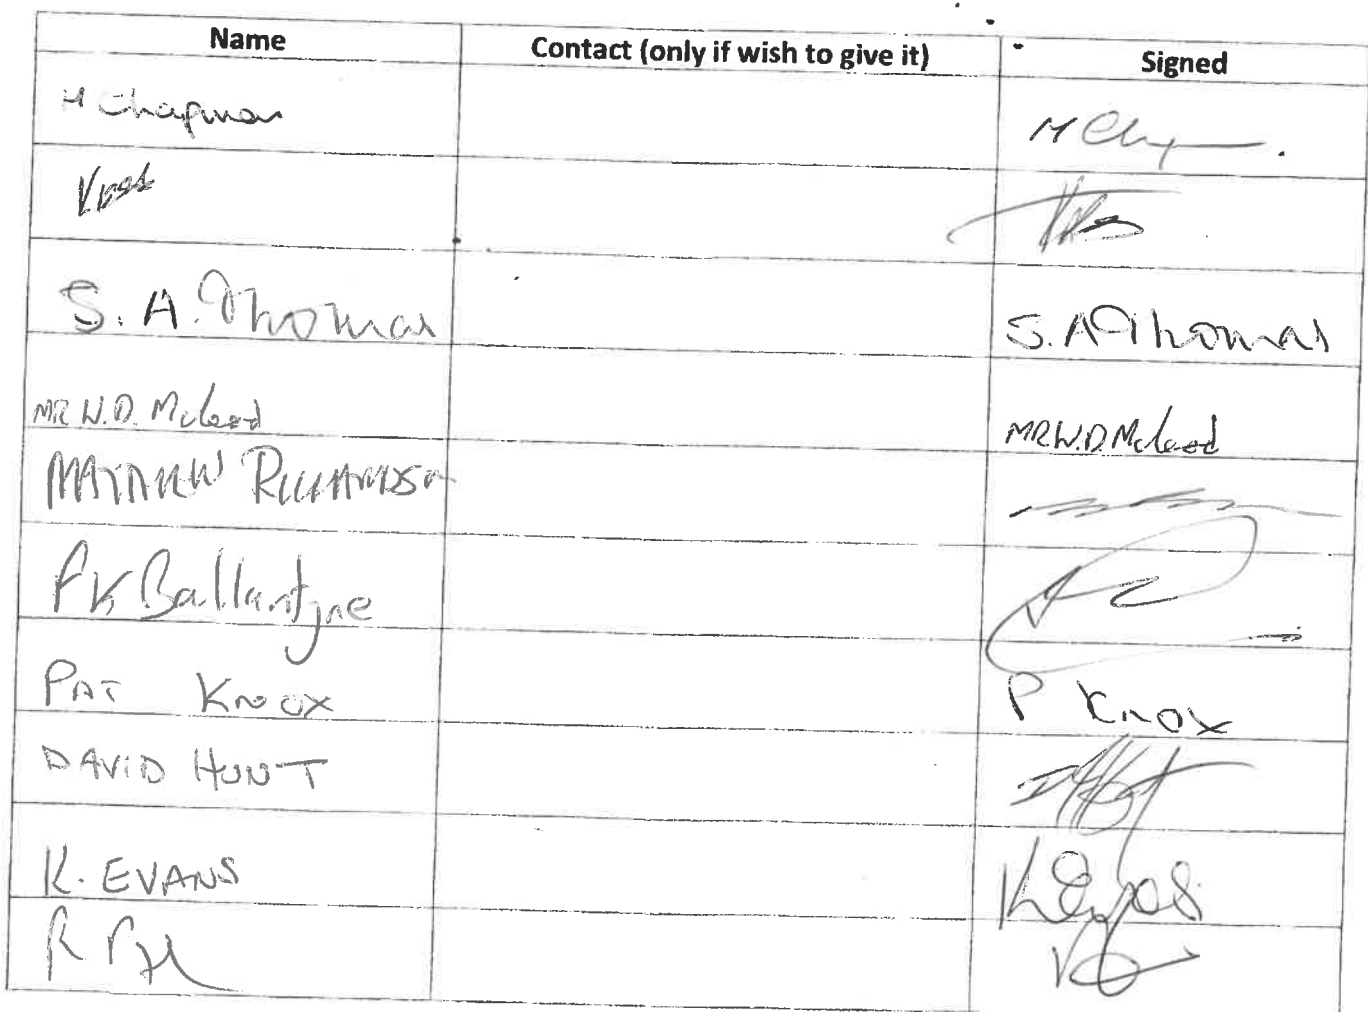 Name Contact (only if wish to give it) Signed
M Chapman M
S. A. Thomas S. A Thomas
MR W.D. McLeod MR W.D. McLeod
MATTHEW RICHARDSON
PK Ballantyne
PAT KNOX P KNOX
DAVID HUNT
K. EVANS K Evans
R